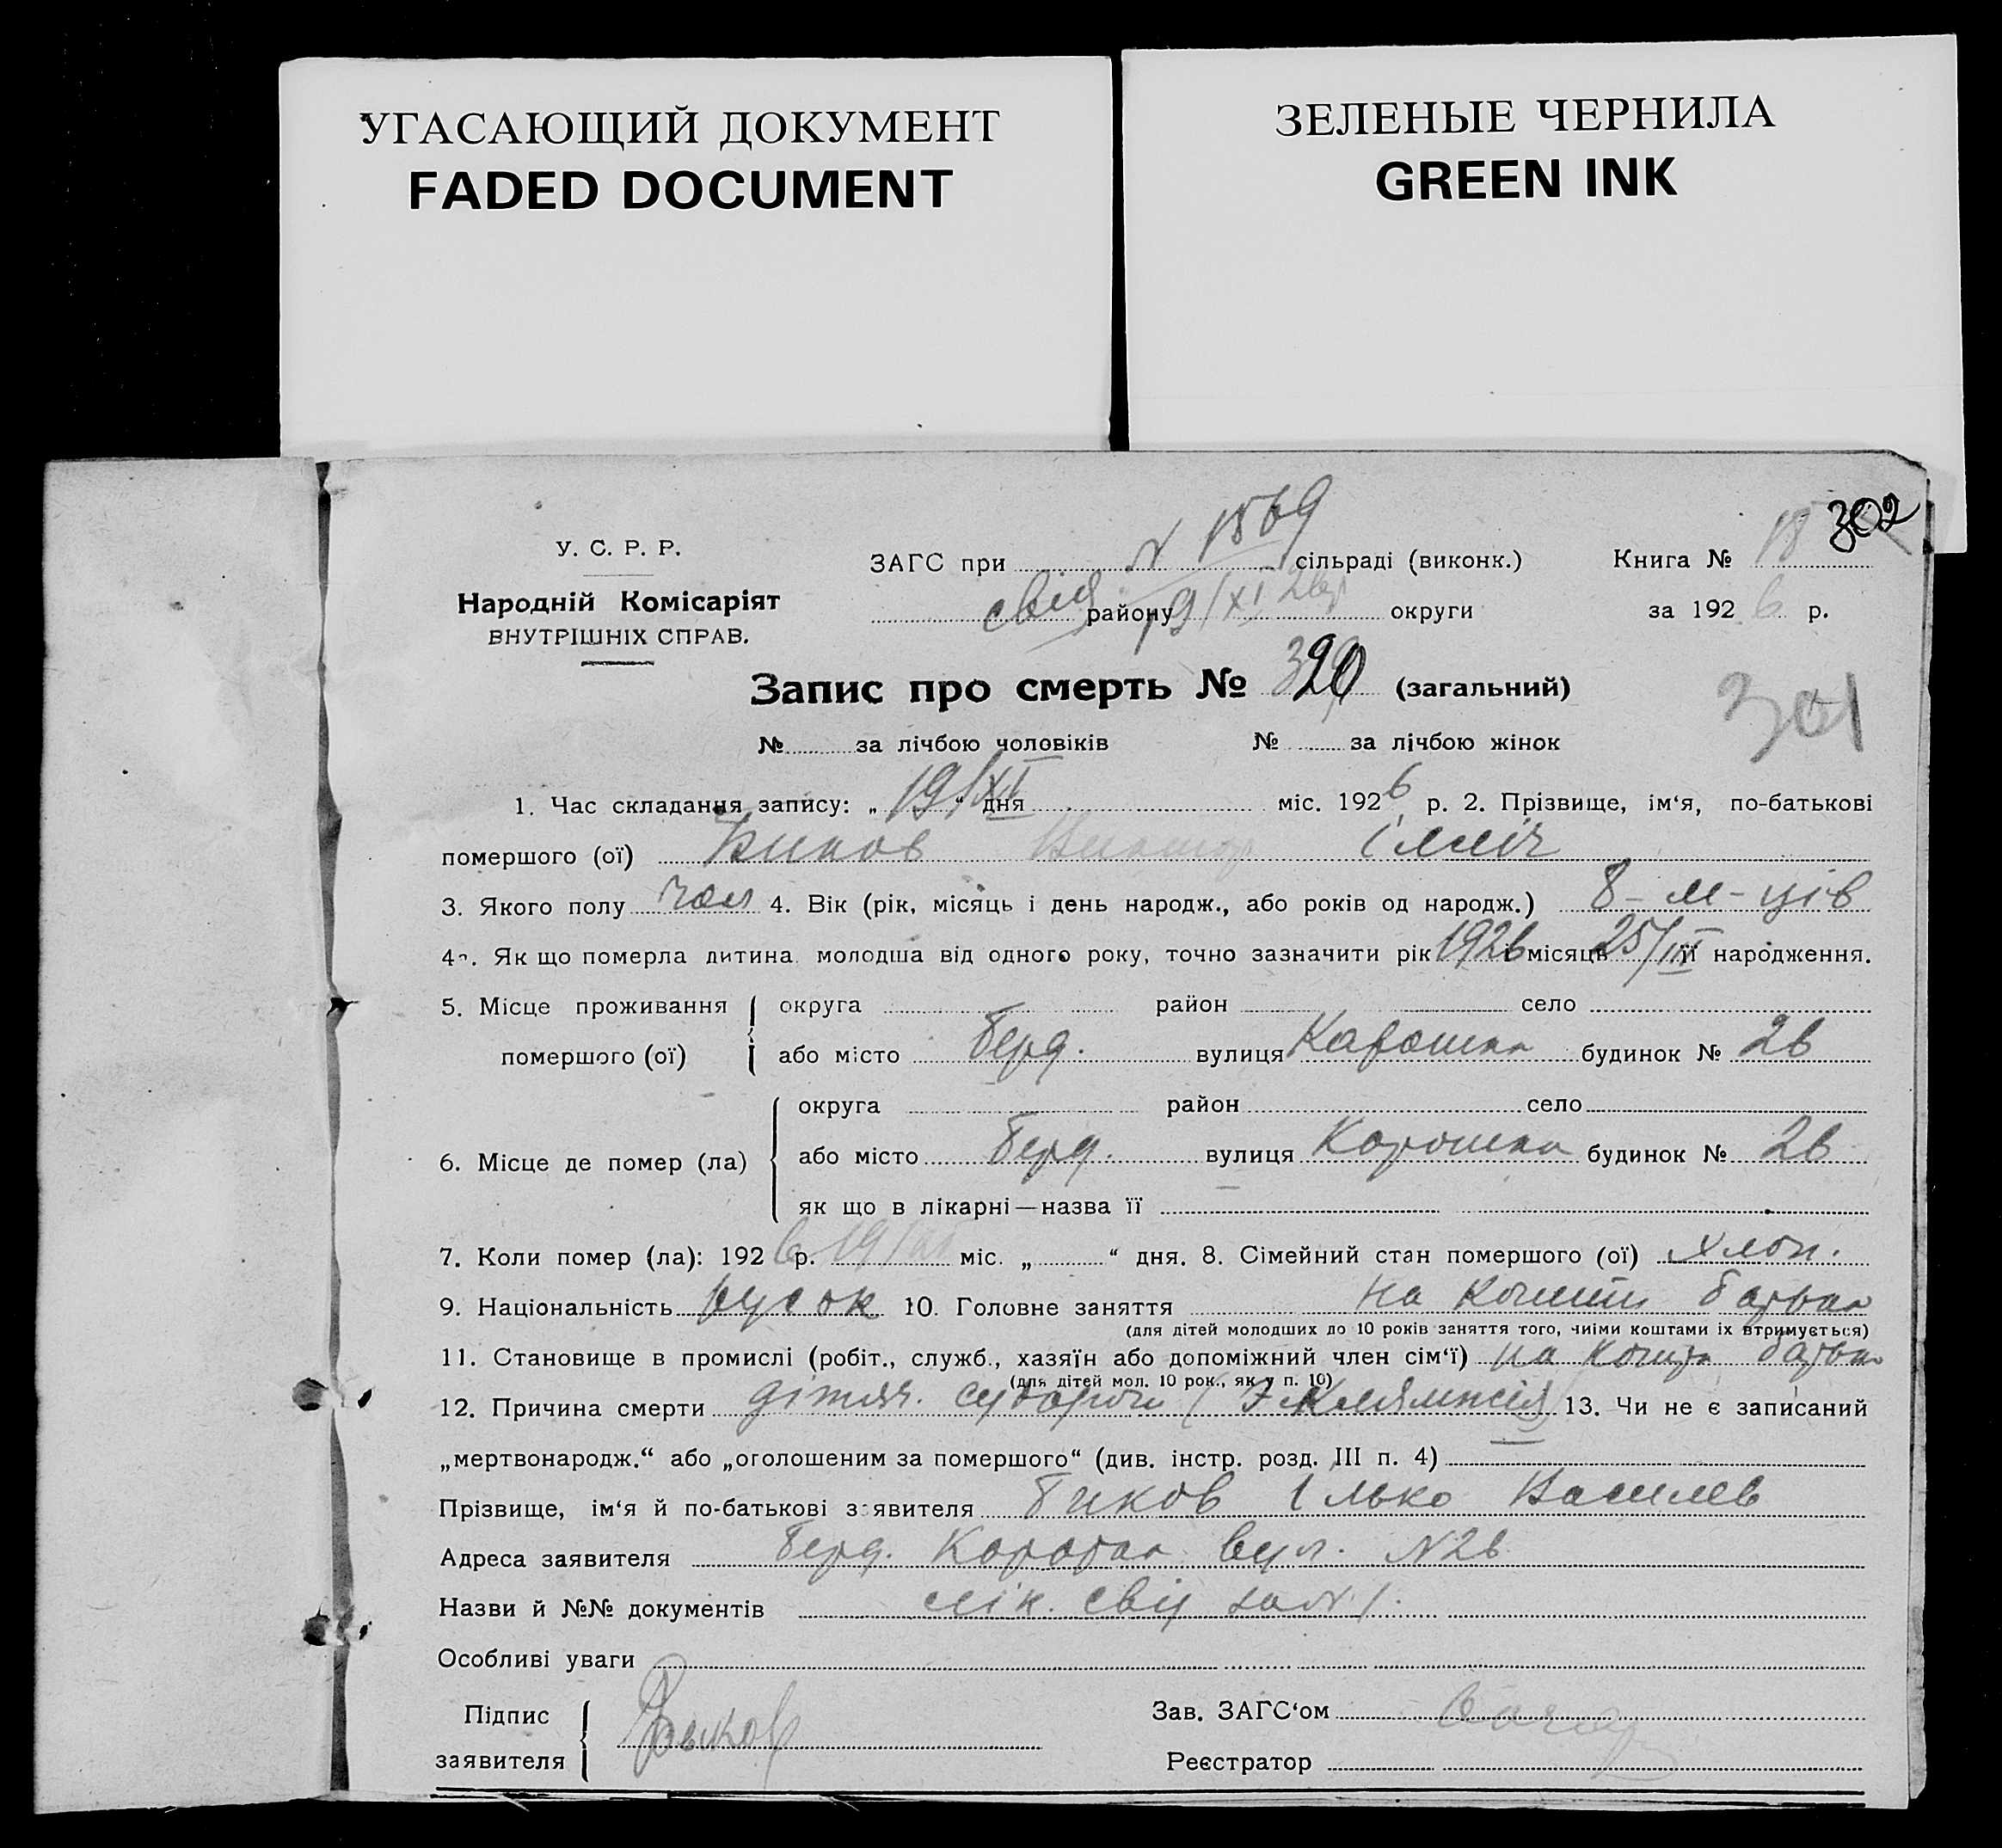 УГАСАЮЩИЙ ДОКУМЕНТ
FADED DOCUMENT
ЗЕЛЕНЫЕ ЧЕРНИЛА
GREEN INK
302
У. С. Р. Р.
Народній Комісаріят
ВНУТРІШНІХ СПРАВ.
ЗАГС при N 1569 сільраді (виконк.) Книга № 18
району 19/XI 26р округи за 192 6 р.
Запис про смерть № 320 (загальний)
301
№ за лічбою чоловіків № за лічбою жінок
1. Час складання запису: „ 19/XI “ дня міс. 192 6 р. 2. Прізвище, ім‘я, по-батькові
помершого (ої) Биков Виктор Ілліч
3. Якого полу чол 4. Вік (рік, місяць і день народж., або років од народж.) 8-м-ців
4а. Як що померла дитина молодша від одного року, точно зазначити рік 1926 місяць 25/III її народження.
5. Місце проживання округа район село
помершого (ої) або місто Берд. вулиця будинок № 26
округа район село
6. Місце де помер (ла) або місто Берд. вулиця будинок № 26
як що в лікарні—назва її
7. Коли помер (ла): 192 6 р. 19/XI міс. „ “ дня. 8. Сімейний стан помершого (ої) хлоп.
9. Національність русок 10. Головне заняття на кошти батька
(для дітей молодших до 10 років заняття того, чиїми коштами їх втримується)
11. Становище в промислі (робіт., служб., хазяїн або допоміжний член сім‘ї) на кошти батька
(для дітей мол. 10 рок., як у п. 10)
12. Причина смерти дітяч. судороги (Эклямпсія) 13. Чи не є записаний
„мертвонародж.“ або „оголошеним за помершого“ (див. інстр. розд. III п. 4)
Прізвище, ім‘я й по-батькові заявителя Биков Ілько Василев
Адреса заявителя Берд. вул. N26
Назви й №№ документів лік. свід за N 1.
Особливі уваги
Підпис Зав. ЗАГС‘ом
заявителя Быков Реєстратор